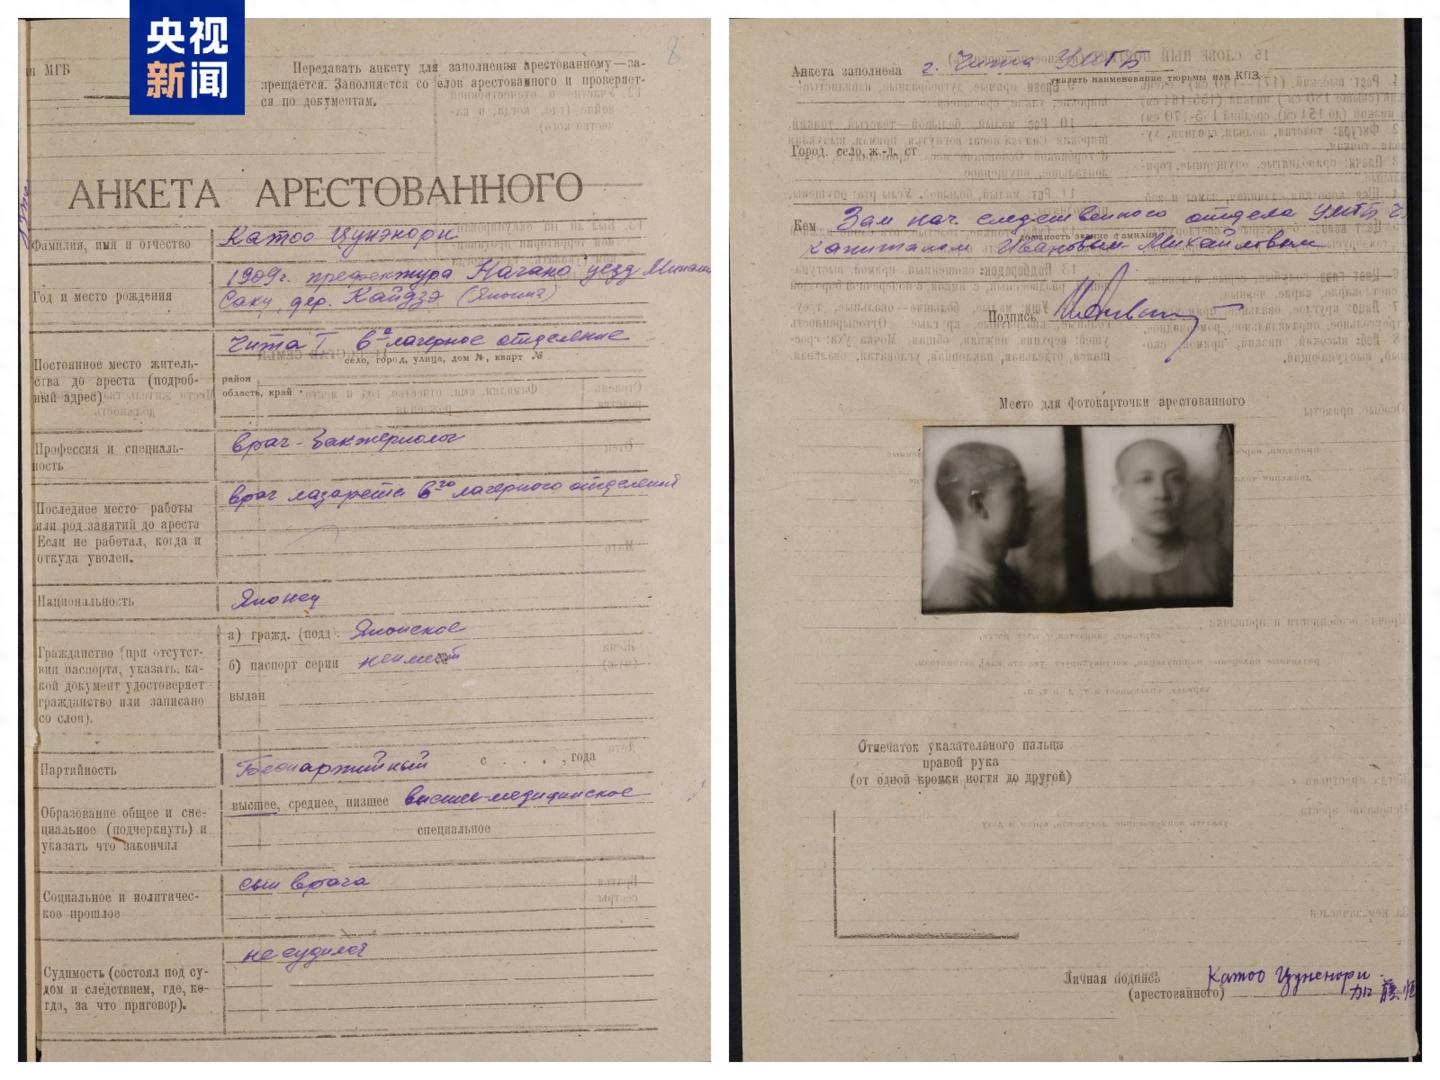 央视
新闻
МГБ
8
Передавать анкету для заполнения арестованному—за-
прещается. Заполняется со слов арестованного и проверяет-
ся по документам.
АНКЕТА АРЕСТОВАННОГО
Фамилия, имя и отчество
Катоо Цунэнори
Год и место рождения
1909г. префектура Нагано, уезд
Саку, дер. Кайдзэ (Япония)
Постоянное место житель-
ства до ареста (подроб-
ный адрес)
Чита I 6е лагерное отделение
село, город, улица, дом №, кварт №
район
область, край
Профессия и специаль-
ность
врач-бактериолог
Последнее место работы
или род занятий до ареста
Если не работал, когда и
откуда уволен.
врач лазарета 6го лагерного отделения
Национальность
Японец
Гражданство (при отсутст-
вии паспорта, указать, ка-
кой документ удостоверяет
гражданство или записано
со слов).
а) гражд. (подд). Японское
б) паспорт серии не имеет
выдан
Партийность
Беспартийный с . . . . , года
Образование общее и спе-
циальное (подчеркнуть) и
указать что закончил
высшее, среднее, низшее высшее-медицинское
специальное
Социальное и политичес-
кое прошлое
сын врача
Судимость (состоял под су-
дом и следствием, где, ко-
гда, за что приговор).
не судился
Анкета заполнена г. Чита УМГБ
указать наименование тюрьмы или КПЗ
Город, село, ж.-д. ст
Кем Зам нач. следственного отдела УМГБ
должность звание фамилия
капитаном Ивановым-Михайловым
Подпись
Место для фотокарточки арестованного
Отпечаток указательного пальца
правой рука
(от одной кромки ногтя до другой)
Личная подпись
(арестованного)
Катоо Цуненори
加藤恒